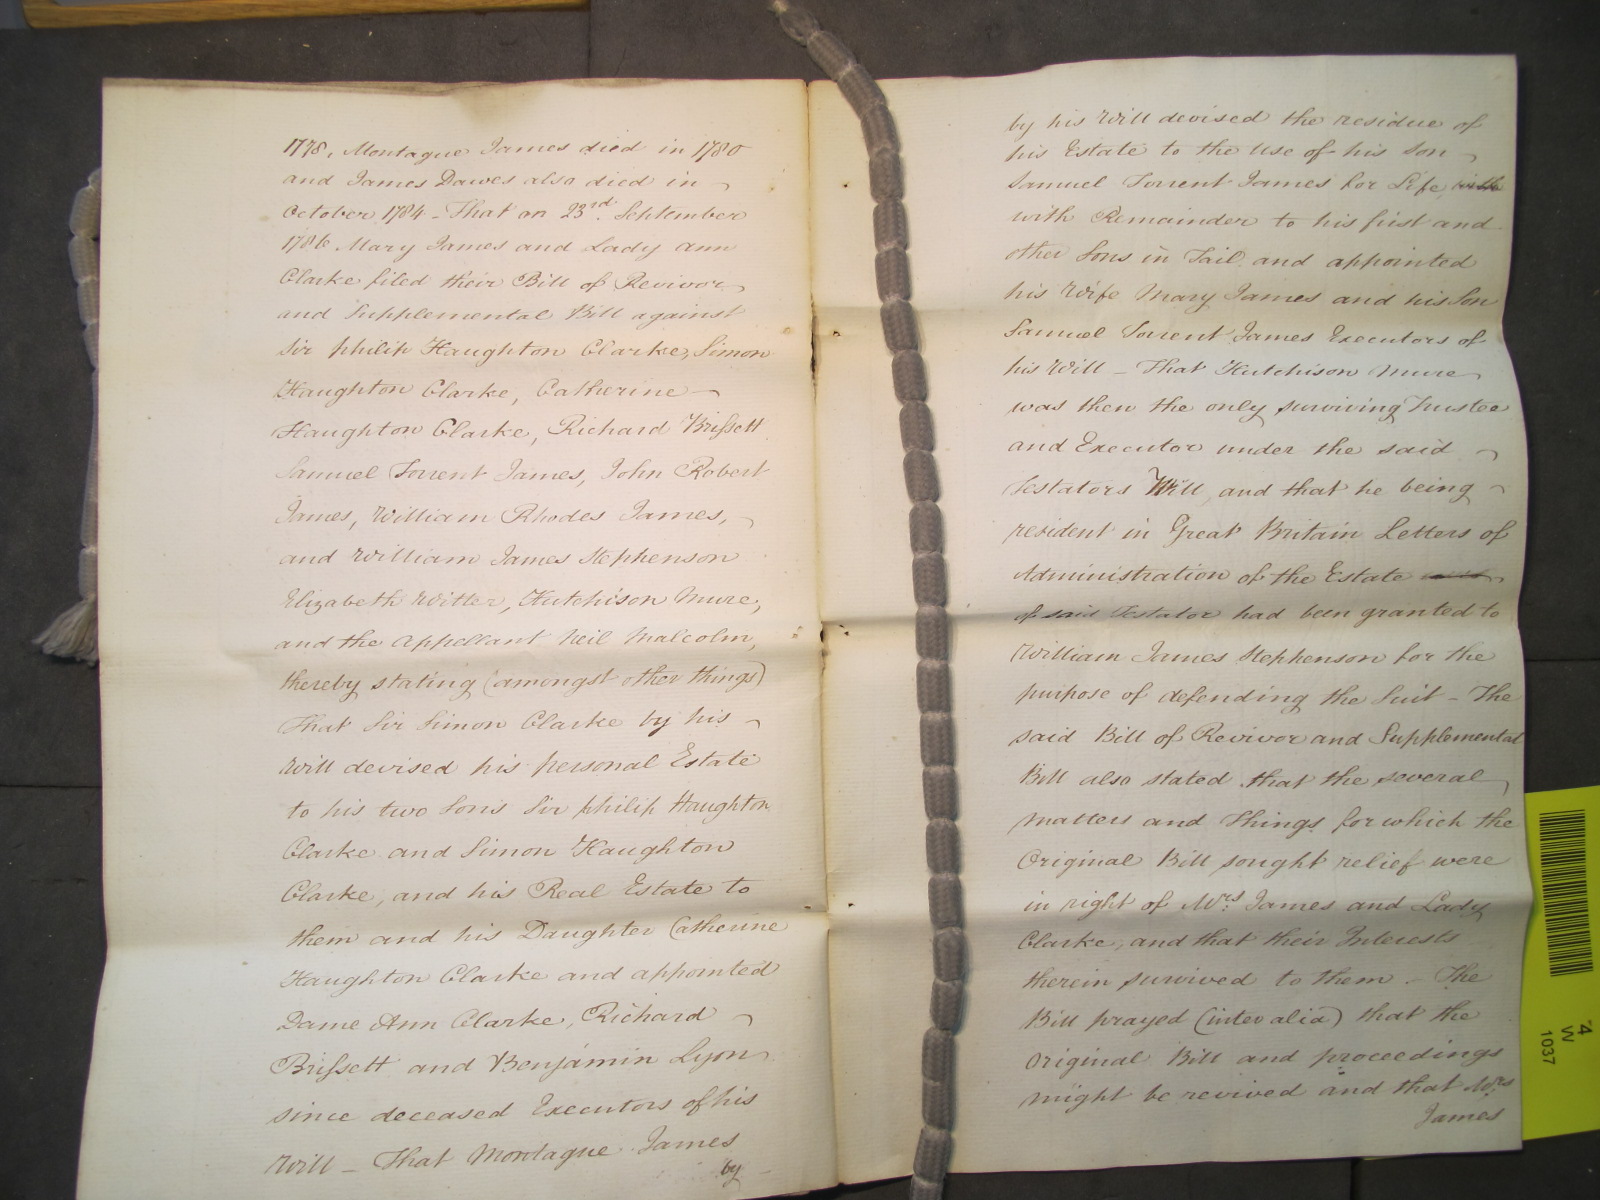 1778, Montague James died in 1780
and James Dawes also died in
October 1784 - That on 23rd. September
1786 Mary James and Lady Ann
Clarke filed their Bill of Revivor
and Supplemental Bill against
Sir Philip Haughton Clarke, Simon
Haughton Clarke, Catherine
Haughton Clarke, Richard Brissett
Samuel Torrent James, John Robert
James, William Rhodes James,
and William James Stephenson
Elizabeth Witter, Hutchison Mure,
and the Appellant Neil Malcolm,
thereby stating (amongst other things)
That Sir Simon Clarke by his
Will devised his personal Estate
to his two Sons Sir Philip Haughton
Clarke and Simon Haughton
Clarke, and his Real Estate to
them and his Daughter Catherine
Haughton Clarke and appointed
Dame Ann Clarke, Richard
Brissett and Benjamin Lyon
since deceased Executors of his
Will - That Montague James
by
by his Will devised the residue of
his Estate to the Use of his Son
Samuel Torrent James for Life
with Remainder to his first and
other Sons in Tail and appointed
his Wife Mary James and his Son
Samuel Torrent James Executors of
his Will - That Hutchison Mure
was then the only surviving Trustee
and Executor under the said
Testators Will, and that he being
resident in Great Britain Letters of
Administration of the Estate
of said Testator had been granted to
William James Stephenson for the
purpose of defending the Suit - The
said Bill of Revivor and Supplemental
Bill also stated that the several
matters and Things for which the
Original Bill sought relief were
in right of Mrs. James and Lady
Clarke, and that their Interests
therein survived to them - The
Bill prayed (inter alia) that the
Original Bill and proceedings
might be revived and that Mrs.
James
4
W
1037